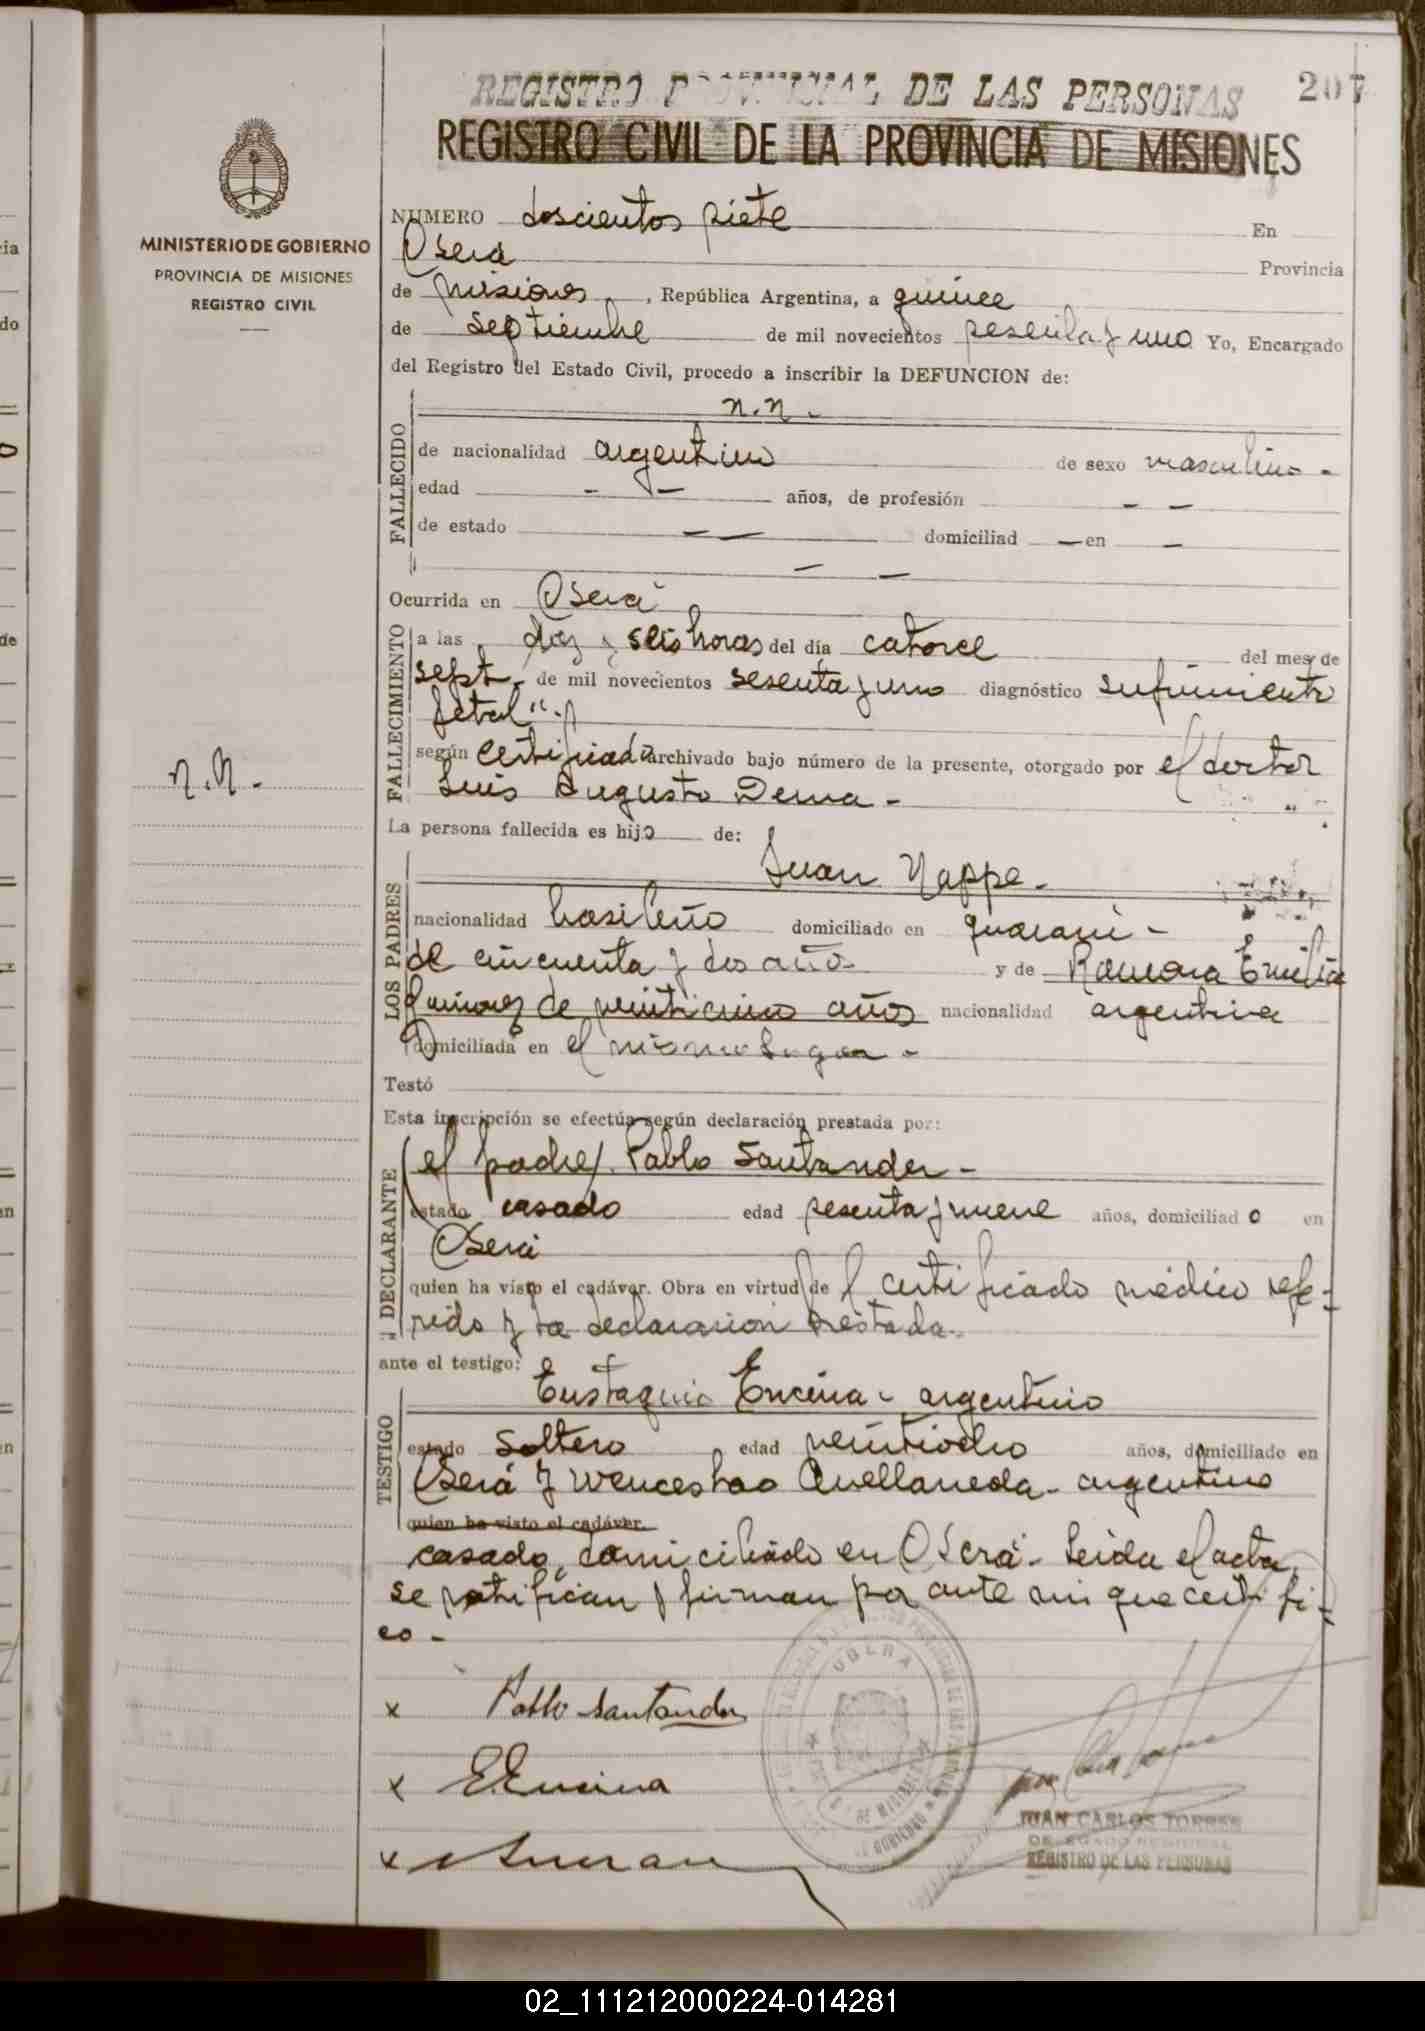 REGISTRO PROVINCIAL DE LAS PERSONAS
207
REGISTRO CIVIL DE LA PROVINCIA DE MISIONES
MINISTERIO DE GOBIERNO
PROVINCIA DE MISIONES
REGISTRO CIVIL
NUMERO doscientos siete En
Oberá Provincia
de Misiones, República Argentina, a quince
de septiembre de mil novecientos sesenta y uno Yo, Encargado
del Registro del Estado Civil, procedo a inscribir la DEFUNCION de:
n.n.-
FALLECIDO
de nacionalidad argentino de sexo masculino -
edad - - años, de profesión - -
de estado - - domiciliad - en -
- -
Ocurrida en Oberá
FALLECIMIENTO
a las diez y seis horas del día catorce del mes de
sept. de mil novecientos sesenta y uno diagnóstico sufrimiento
fetal".
según certificado archivado bajo número de la presente, otorgado por el doctor
Luis Augusto Derna -
n.n.-
La persona fallecida es hijo de:
LOS PADRES
Juan Nappe -
nacionalidad brasileño domiciliado en guaraní -
de cincuenta y dos años y de Ramona Emilia
de veinticinco años nacionalidad argentina
domiciliada en el mismo lugar -
Testó
Esta inscripción se efectúa según declaración prestada por:
DECLARANTE
(el padre). Pablo Santander -
estado casado edad sesenta y nueve años, domiciliado en
Oberá
quien ha visto el cadáver. Obra en virtud del certificado médico refe-
rido y la declaración prestada.
ante el testigo:
TESTIGO
Eustaquio Encina - argentino
estado soltero edad veintiocho años, domiciliado en
Oberá y Wenceslao Avellaneda - argentino
quien ha visto el cadáver.
casado, domiciliado en Oberá - Leída el acta,
se ratifican y firman por ante mi que certifi-
co -
x Pablo Santander
x E. Encina
x
OBERA
JUAN CARLOS TORRES
DELEGADO REGIONAL
REGISTRO DE LAS PERSONAS
02_111212000224-014281